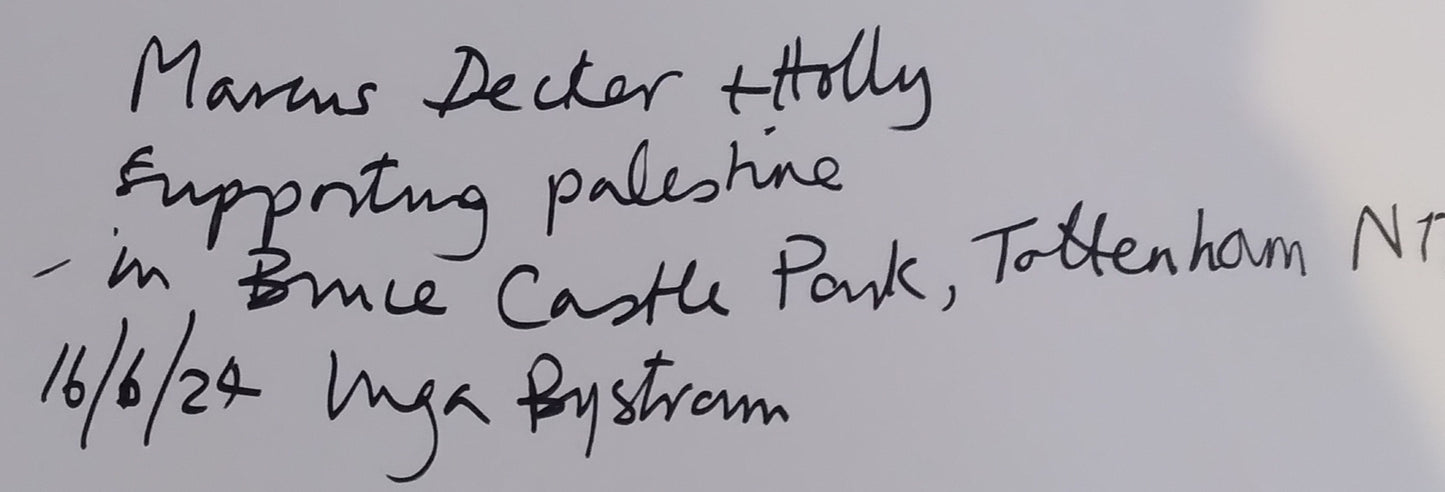 Marcus Decker + Holly
supporting palestine
- in Bruce Castle Park, Tottenham N17
16/6/24 Inga Bystram